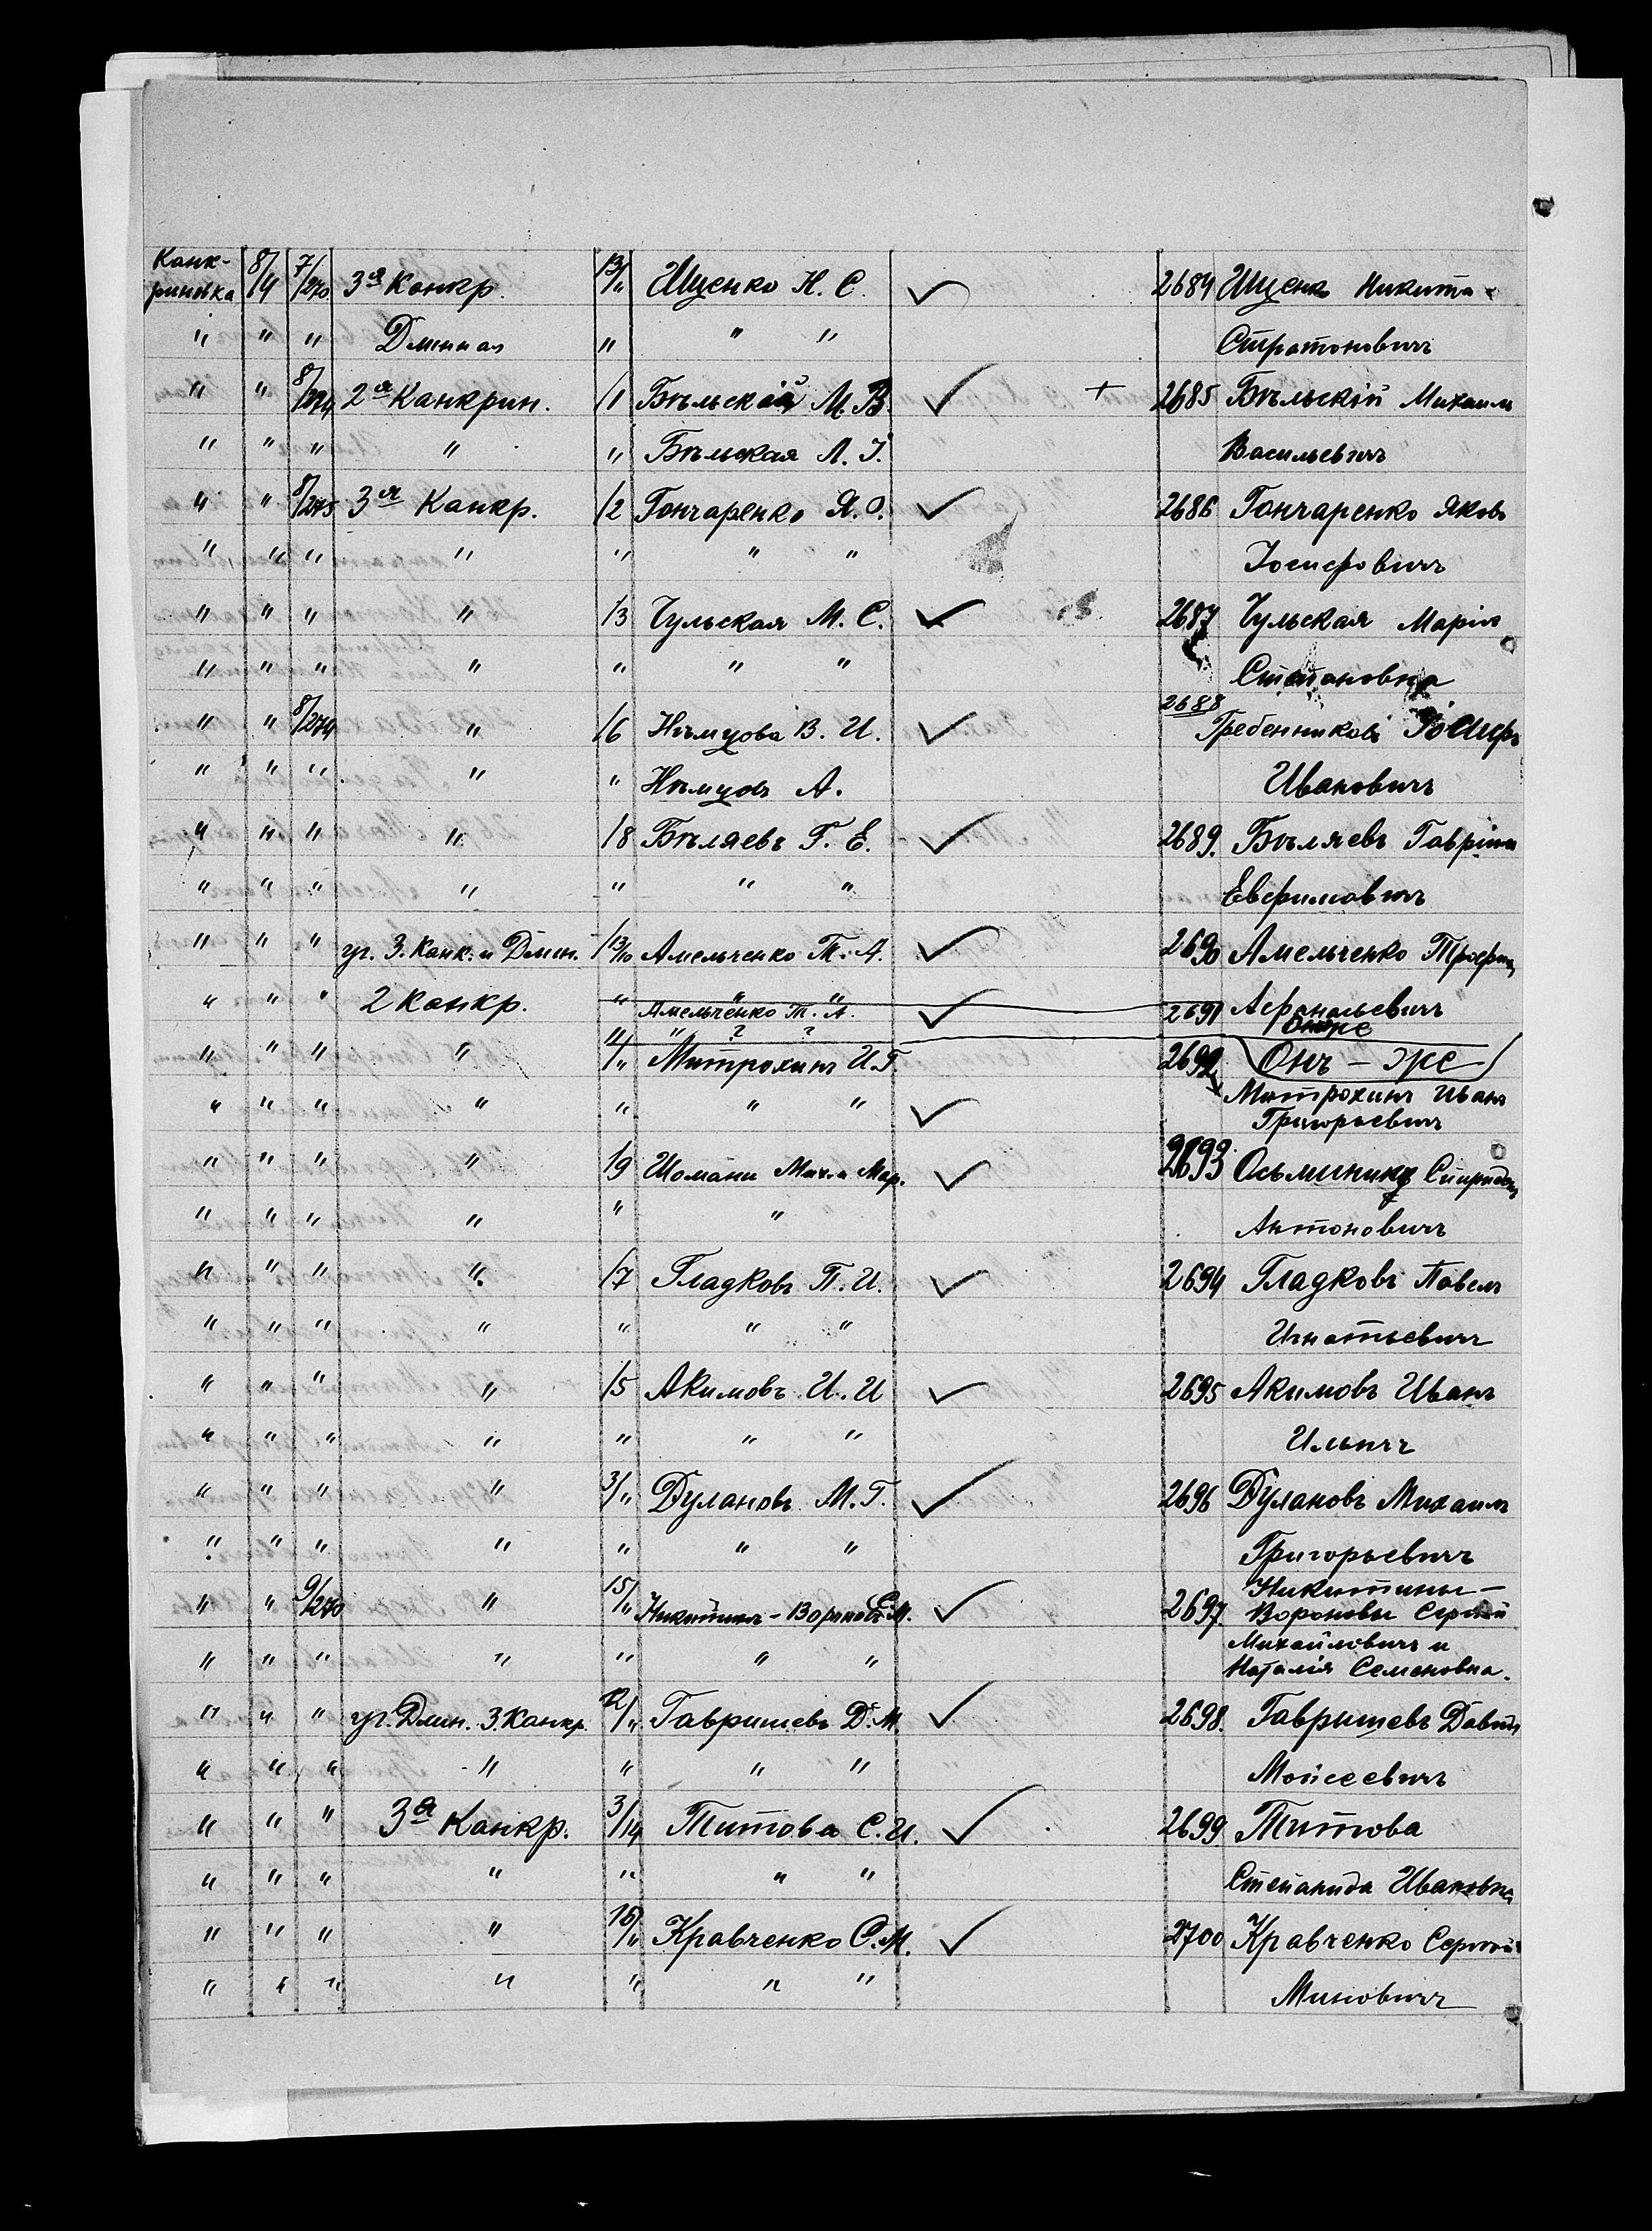 Канк- 8/ 7/ 13/
риновка 14 /270 3я Канкр. " Ищенко Н. С. 2684 Ищенко Никита
" " " Длинная " " " Стратоновичъ
" " 8/274 2я Канкрин. /1 Бѣльскій М. В. + 2685 Бѣльскій Михаилъ
" " " " " Бѣльская Л. I. Васильевичъ
" " 8/275 3я Канкр. /2 Гончаренко Я. О. 2686 Гончаренко Яковъ
" " " " " " " Іосифовичъ
" " " " /3 Чульская М. С. 2687 Чульская Марія
" " " " " " " Степановна
" " 8/274 " /6 Нѣмцова В. И. 2688 Гребенниковъ Іосифъ
" " " " " Нѣмцовъ А. Ивановичъ
" " " " /8 Бѣляевъ Г. Е. 2689. Бѣляевъ Гавріилъ
" " " " " " " Евфимовичъ
" " " уг. 3. Канк. и Длин. 13/10 Амельченко Т. А. 2690 Амельченко Трофимъ
" " " 2 Канкр. " " " Афанасьевичъ
Амельченко Т. А. 2691 Онже
" ? ?
" " " " 11/" Митрохинъ И. Г. 2692 Онъ - же
" " " " " " " Митрохинъ Иванъ
Григорьевичъ
" " " " /9 Шомани Мих. и Мар. 2693 Осьмининъ Спиридонъ
" " " " " " Антоновичъ
" " " " /7 Гладковъ П. И. 2694 Гладковъ Павелъ
" " " " " " " Игнатьевичъ
" " " " /5 Акимовъ И. И 2695 Акимовъ Иванъ
" " " " " " " Ильичъ
" " " " 3/" Дулановъ М. Г. 2696 Дулановъ Михаилъ
" " " " " " " Григорьевичъ
" " 9/270 " 15/" Никитинъ - Вороновъ С. М. 2697. Никитины -
Вороновы Сергѣй
" " " " " " " Михайловичъ и
Наталія Семеновна.
" " " уг. Длин. 3. Канкр. 12/" Гавришевъ Д. М. 2698. Гавришевъ Давидъ
" " " " " " " Мойсеевичъ
" " " 3я Канкр. 3/14 Титова С. И. 2699 Титова
" " " " " " " Степанида Ивановна
" " " " 16/" Кравченко С. М. 2700 Кравченко Сергѣй
" " " " " " " Миновичъ